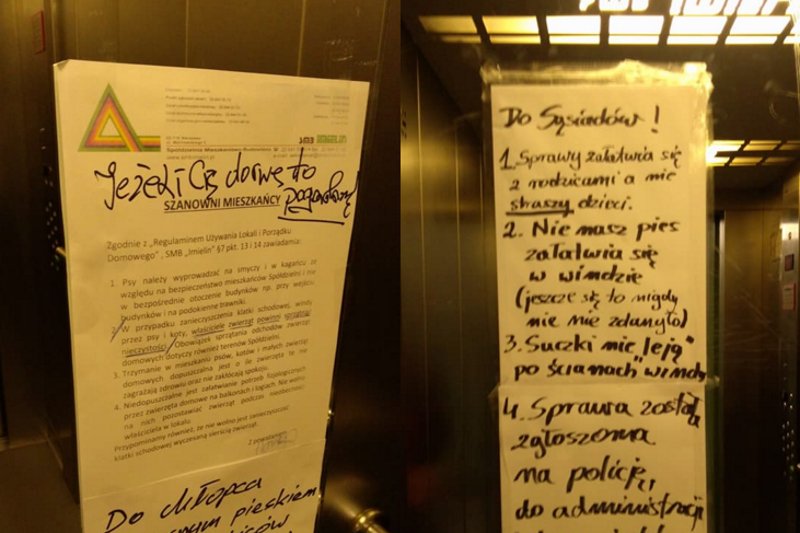 SMB IMIELIN
Spółdzielnia Mieszkaniowo-Budowlana
Jeżeli Cię dorwę to
pogawędzimy!
SZANOWNI MIESZKAŃCY
Zgodnie z „Regulaminem Używania Lokali i Porządku
Domowego", SMB „Imielin" §7 pkt. 13 i 14 zawiadamia:
1. Psy należy wyprowadzać na smyczy i w kagańcu ze
względu na bezpieczeństwo mieszkańców Spółdzielni i nie
w bezpośrednie otoczenie budynków np. przy wejściu
budynków i na podokienne trawniki.
2. W przypadku zanieczyszczenia klatki schodowej, windy
przez psy i koty, właściciele zwierząt powinni sprzątnąć
nieczystości. Obowiązek sprzątania odchodów zwierząt
domowych dotyczy również terenów Spółdzielni.
3. Trzymanie w mieszkaniu psów, kotów i małych zwierząt
domowych dopuszczalna jest o ile zwierzęta te nie
zagrażają zdrowiu oraz nie zakłócają spokoju.
4. Niedopuszczalne jest załatwianie potrzeb fizjologicznych
przez zwierzęta domowe na balkonach i logach. Nie wolno
na nich pozostawiać zwierząt podczas nieobecności
właściciela w lokalu.
Przypominamy również, że nie wolno zanieczyszczać
klatki schodowej wyczesaną sierścią zwierząt.
Z poważaniem
Do chłopca
pieskiem
Do Sąsiadów!
1. Sprawy załatwia się
z rodzicami a nie
straszy dzieci.
2. Nie masz pies
załatwia się
w windzie
(jeszcze się to nigdy
nie zdarzyło)
3. Suczki nie „leją"
po ścianach windy
4. Sprawa została
zgłoszona
na policję,
do administracji